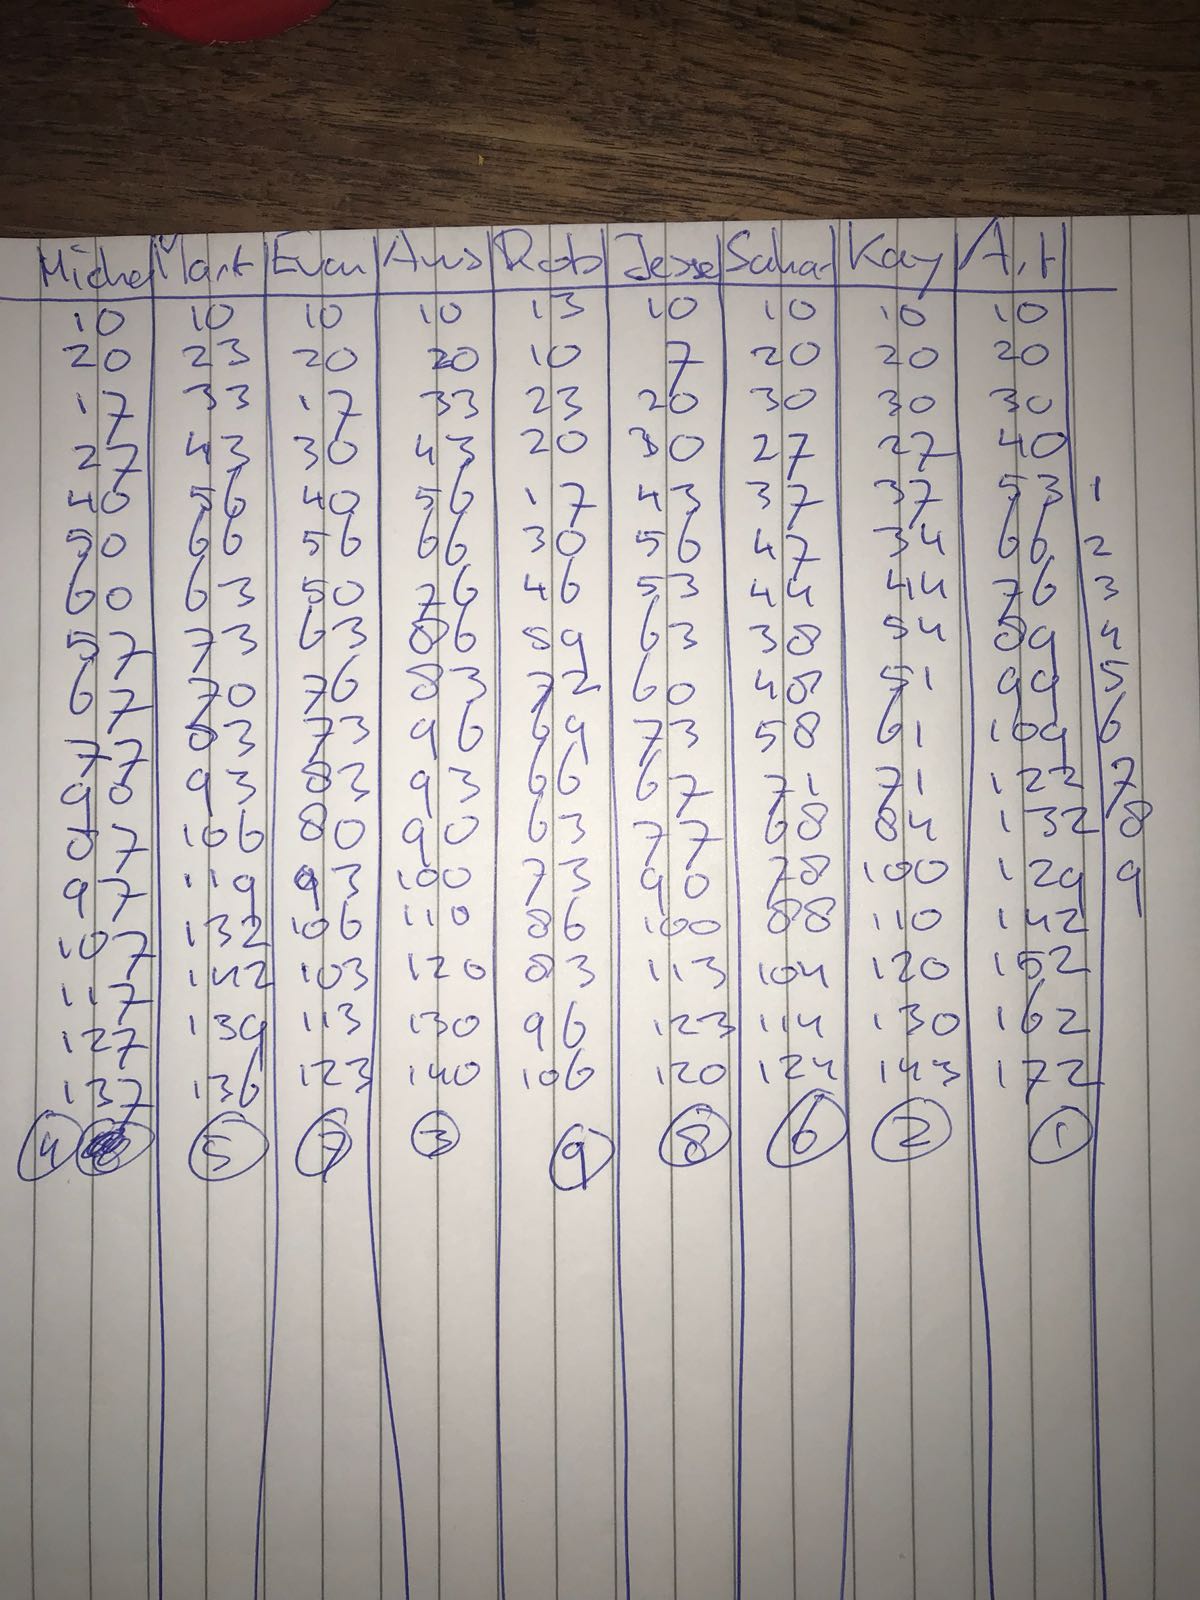 Michel Mark Evan Aws Rob Jesse Sahar Kay A.H
10 10 10 10 13 10 10 10 10
20 23 20 20 10 7 20 20 20
17 33 17 33 23 20 30 30 30
27 43 30 43 20 30 27 27 40
40 56 40 56 17 43 37 37 53 1
50 66 56 66 30 56 47 34 66 2
60 63 50 76 46 53 44 44 76 3
57 73 63 86 59 63 38 54 89 4
67 70 76 83 72 60 48 51 99 5
77 83 73 96 69 73 58 61 109 6
90 93 83 93 66 67 71 71 122 7
87 106 80 90 63 77 68 84 132 8
97 119 93 100 73 90 78 100 129 9
107 132 106 110 86 100 88 110 142
117 142 103 120 83 113 104 120 152
127 139 113 130 96 123 114 130 162
137 136 123 140 106 120 124 143 172
4 5 7 3 9 8 6 2 1